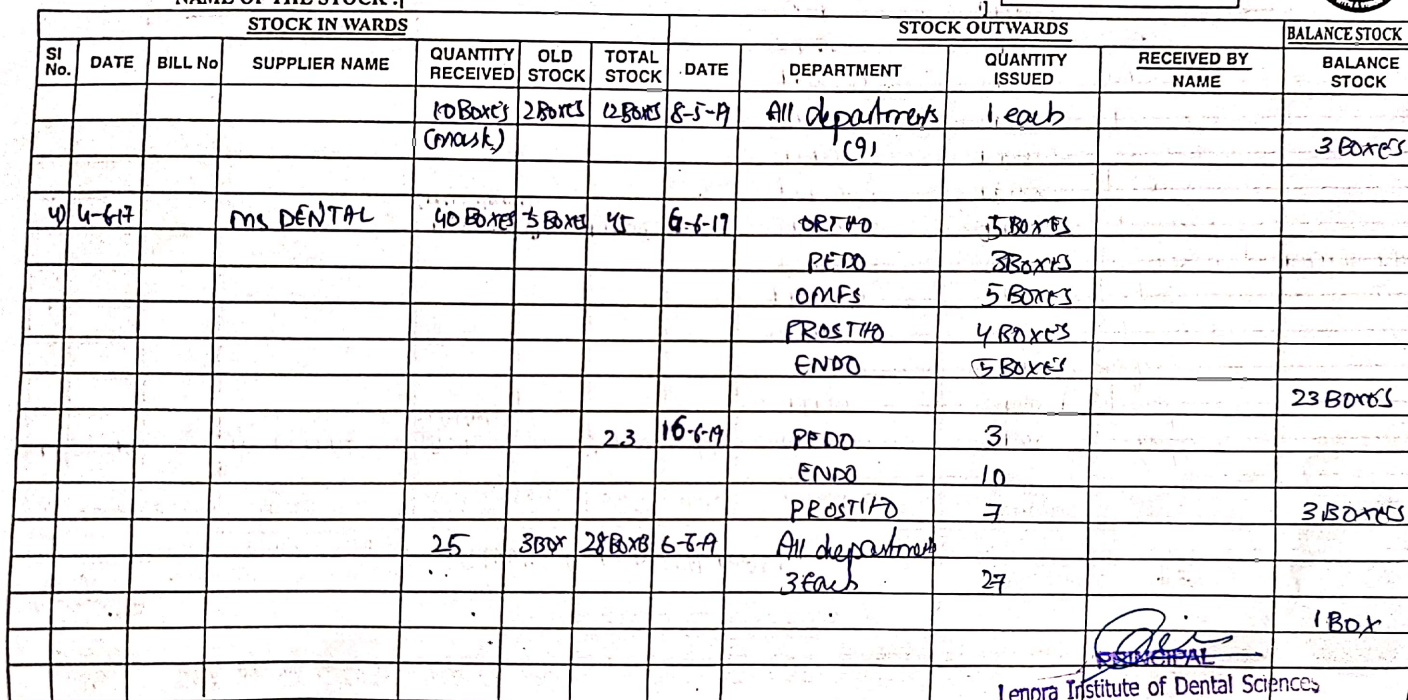 NAME OF THE STOCK :[ ]
STOCK IN WARDS STOCK OUTWARDS BALANCE STOCK
SI No. DATE BILL No SUPPLIER NAME QUANTITY RECEIVED OLD STOCK TOTAL STOCK DATE DEPARTMENT QUANTITY ISSUED RECEIVED BY NAME BALANCE STOCK
10 Boxes 2 Boxes 12 Boxes 8-5-19 All departments 1 each
(mask) (9) 3 Boxes
4) 4-6-17 ms DENTAL 40 Boxes 5 Boxes 45 6-6-19 ORTHO 5 BOXES
PEDO 3 BOXES
OMFS 5 BOXES
PROSTHO 4 BOXES
ENDO 5 BOXES
23 Boxes
23 16-6-19 PEDO 3
ENDO 10
PROSTHO 7 3 Boxes
25 3 Box 28 Boxes All department
3 Each 27
1 BOX
PRINCIPAL
Lenora Institute of Dental Sciences